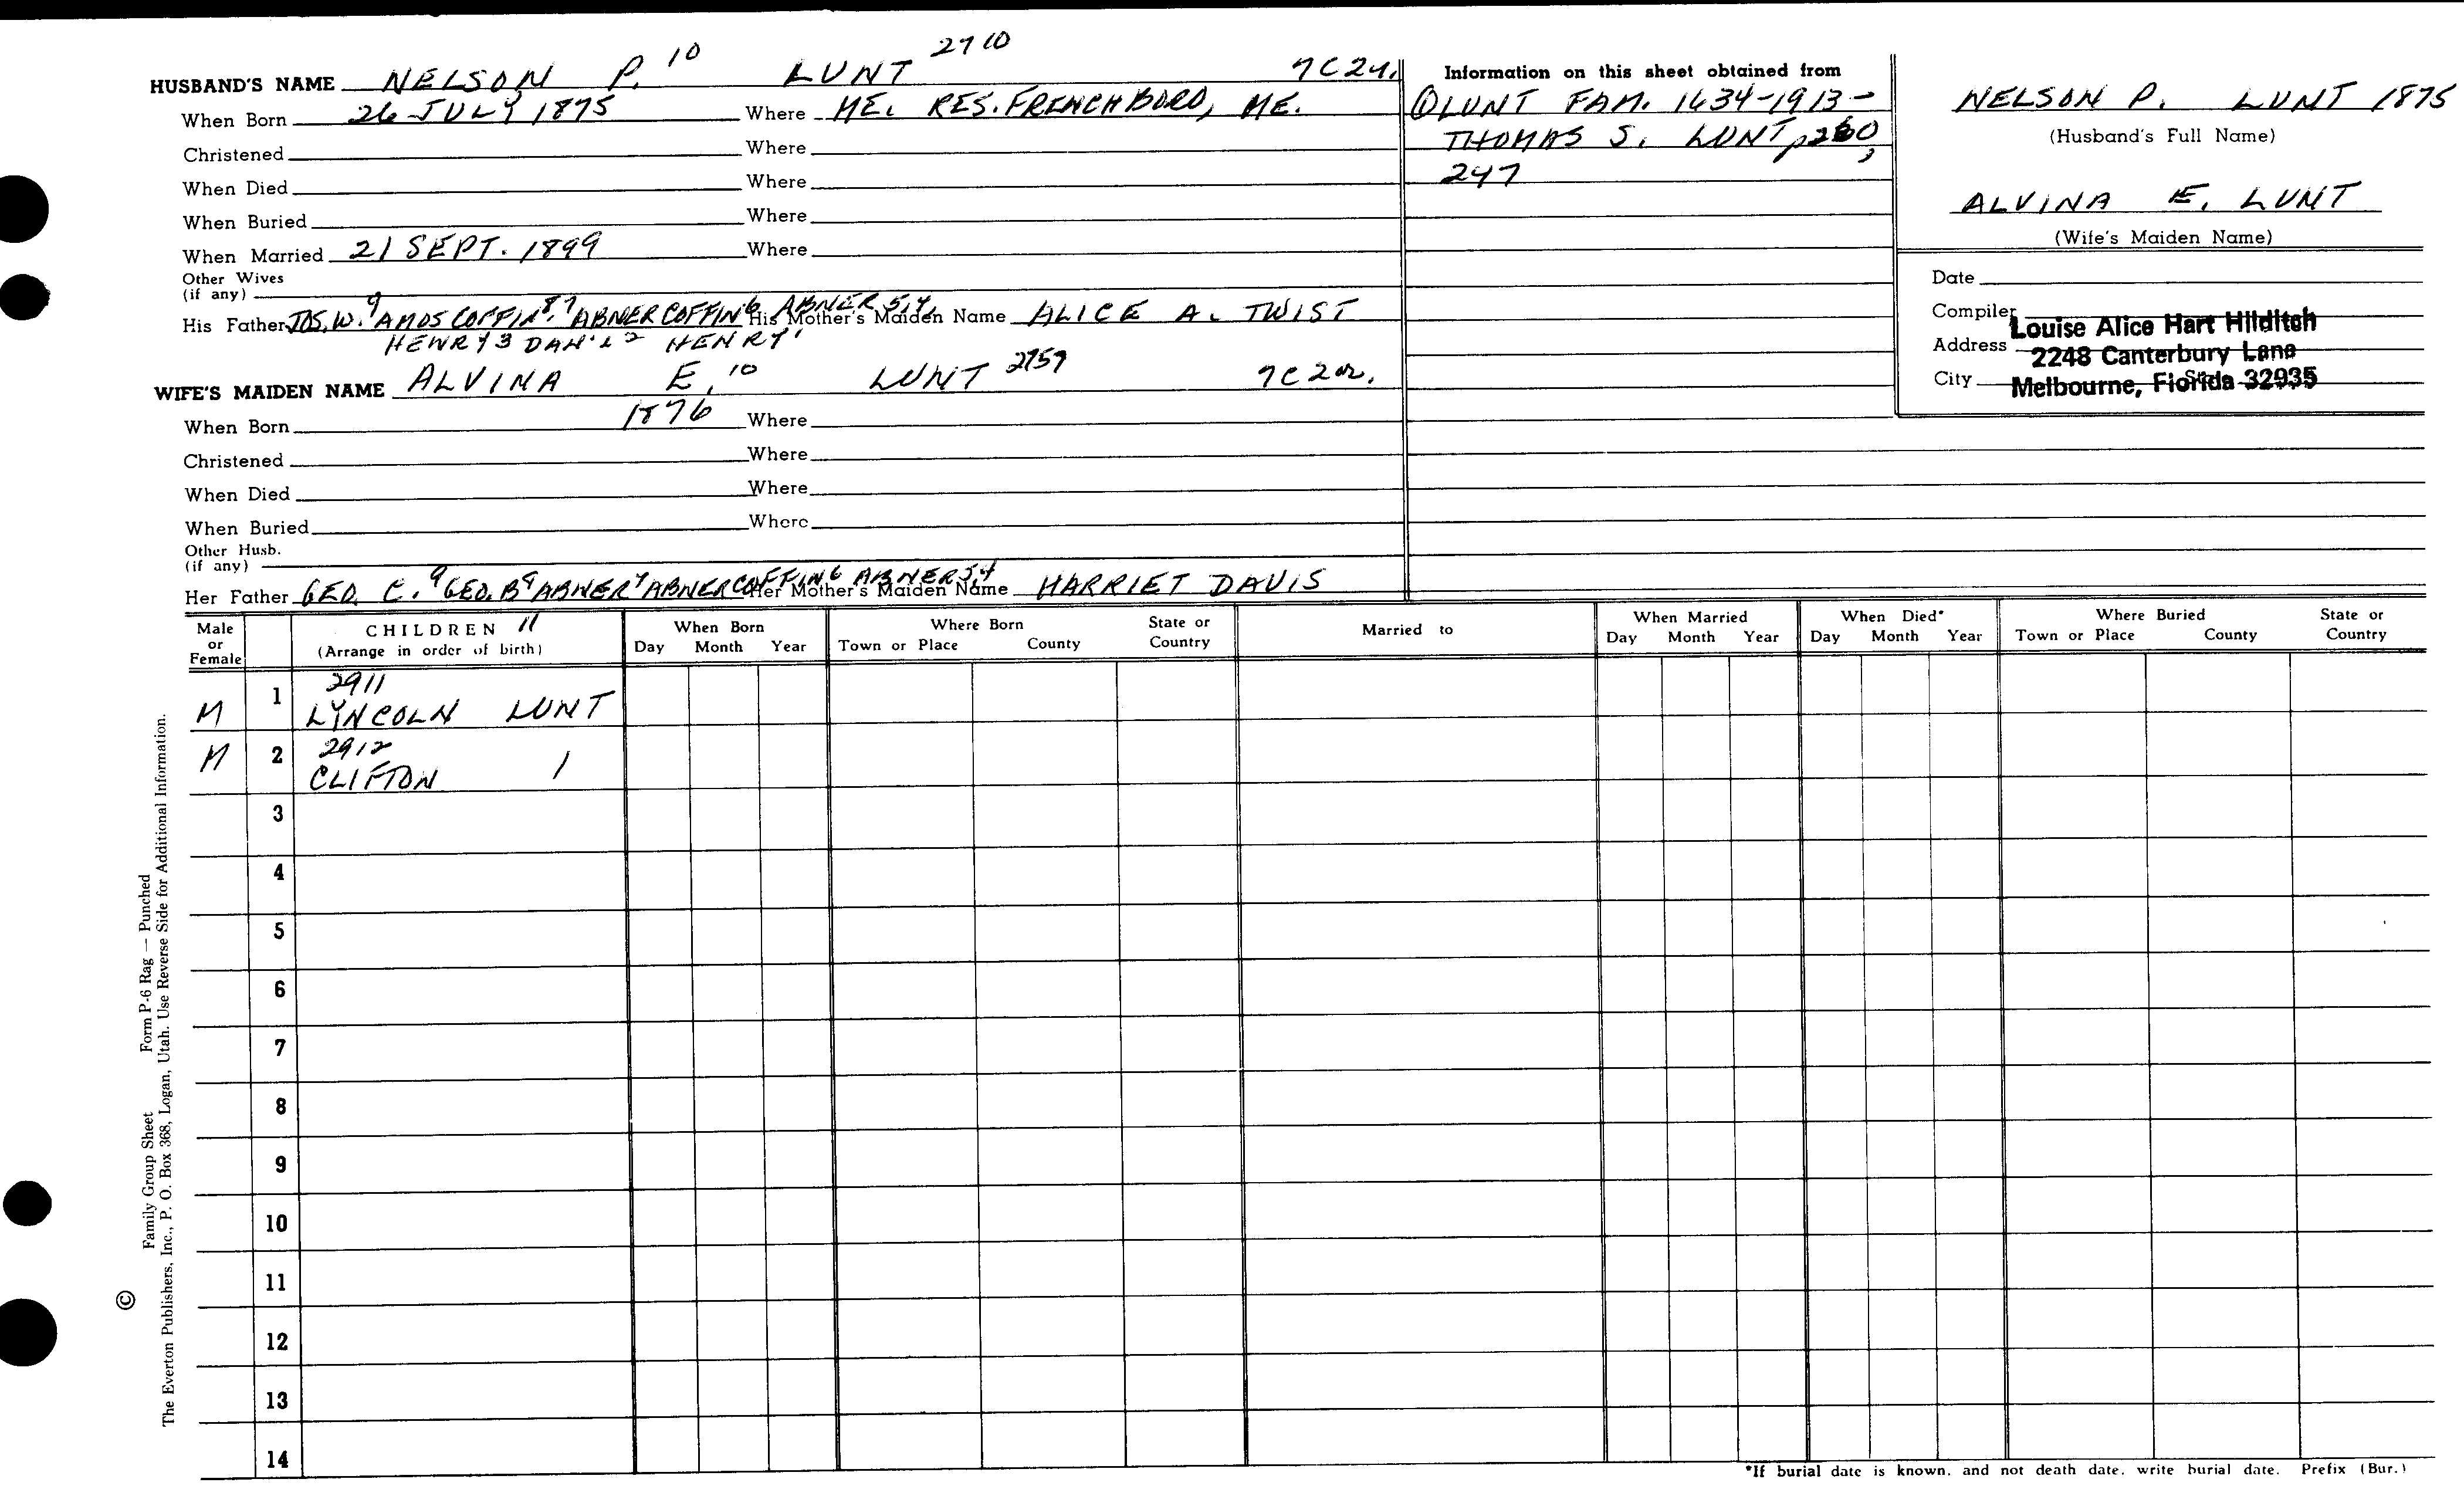 HUSBAND'S NAME NELSON P. 10 LUNT 2710 7C24.
When Born 26 JULY 1875 Where ME. RES. FRENCHBORO, ME.
Christened Where
When Died Where
When Buried Where
When Married 21 SEPT. 1899 Where
Other Wives
(if any)
His Father JOS. W. 9 AMOS COFFIN 8, 7 ABNER COFFIN 6 ABNER 5,4, His Mother's Maiden Name ALICE A. TWIST
HENRY 3 DAN'L 2 HENRY 1
WIFE'S MAIDEN NAME ALVINA E. 10 LUNT 2759 7C2
When Born 1876 Where
Christened Where
When Died Where
When Buried Where
Other Husb.
(if any)
Her Father GEO. C. 9 GEO. B 8 ABNER 7 ABNER COFFIN 6 ABNER 5,4 Her Mother's Maiden Name HARRIET DAVIS
Information on this sheet obtained from
① LUNT FAM. 1634-1913-
THOMAS S. LUNT,
247
NELSON P. LUNT 1875
(Husband's Full Name)
ALVINA E. LUNT
(Wife's Maiden Name)
Date
Compiler Louise Alice Hart Hilditch
Address 2248 Canterbury Lane
City Melbourne, Florida 32935
Male or Female
CHILDREN 11
(Arrange in order of birth)
When Born
Day Month Year
Where Born
Town or Place County State or Country
Married to
When Married
Day Month Year
When Died*
Day Month Year
Where Buried
Town or Place County State or Country
M 1 2911
LYNCOLN LUNT
M 2 2912
CLIFTON
3
4
5
6
7
8
9
10
11
12
13
14
*If burial date is known, and not death date, write burial date. Prefix (Bur.)
© Family Group Sheet Form P-6 Rag — Punched
The Everton Publishers, Inc., P. O. Box 368, Logan, Utah. Use Reverse Side for Additional Information.